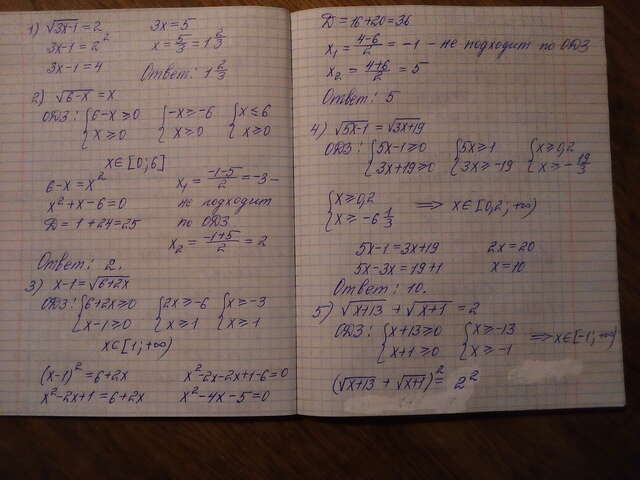 1) √3x-1 = 2
3x-1 = 2²
3x-1 = 4
3x = 5
x = 5/3 = 1 2/3
Ответ: 1 2/3
2) √6-x = x
ОДЗ: {6-x ≥ 0 {-x ≥ -6 {x ≤ 6
{x ≥ 0 {x ≥ 0 {x ≥ 0
x∈[0;6]
6-x = x²
x²+x-6=0
D = 1+24=25
x₁ = (-1-5)/2 = -3 -
не подходит
по ОДЗ
x₂ = (-1+5)/2 = 2
Ответ: 2.
3) x-1 = √6+2x
ОДЗ: {6+2x≥0 {2x ≥ -6 {x ≥ -3
{x-1≥0 {x ≥ 1 {x ≥ 1
x∈[1;+∞)
(x-1)² = 6+2x
x²-2x+1 = 6+2x
x²-2x-2x+1-6=0
x²-4x-5=0
D = 16+20=36
x₁ = (4-6)/2 = -1 - не подходит по ОДЗ
x₂ = (4+6)/2 = 5
Ответ: 5
4) √5x-1 = √3x+19
ОДЗ: {5x-1≥0 {5x≥1 {x ≥ 0,2
{3x+19≥0 {3x ≥ -19 {x ≥ -19/3
{x ≥ 0,2
{x ≥ -6 1/3
⟹ x∈[0,2;+∞)
5x-1 = 3x+19
5x-3x = 19+1
2x = 20
x = 10
Ответ: 10.
5) √x+13 + √x+1 = 2
ОДЗ: {x+13≥0 {x ≥ -13 ⟹ x∈[-1;+∞)
{x+1≥0 {x ≥ -1
(√x+13 + √x+1)² = 2²